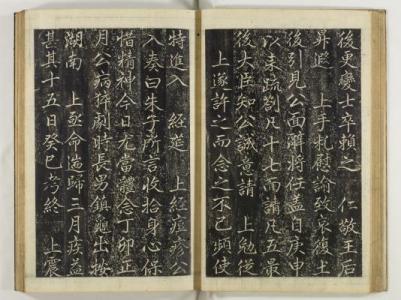 後更慶士卒賴之 仁敬王后
昇遐 上手札慰諭致哀復土
後引見公面辭將任盖自庚申
以來疏劄凡十七而請凡五最
後大臣知公誠意請 上勉從
上遂許之而念之不已頻使
特進入 經筵 上經痘疹公
入奏曰朱子所言收拾身心保
惜精神今日尤當體念丁卯正
月公病猝劇時長男鎭龜出按
湖南 上亟命遄歸三月疾益
甚其十五日癸巳考終 上震